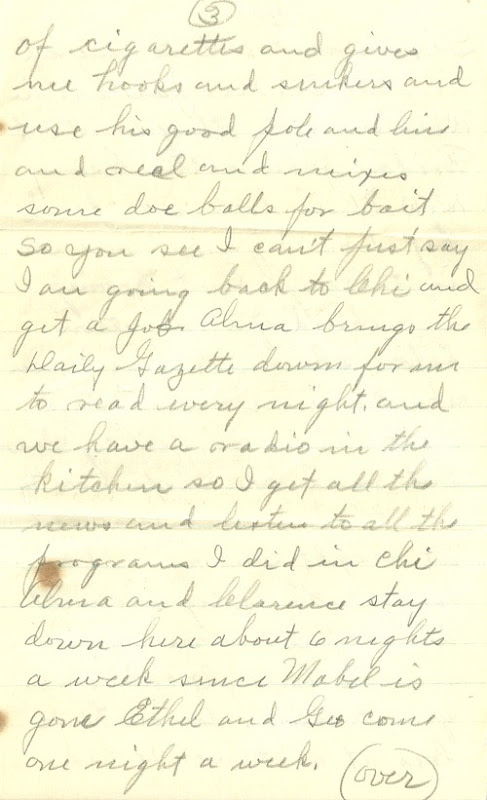 3
of cigarettes and gives
me hooks and sinkers and
use his good pole and line
and reel and mixes
some doe balls for bait
So you see I can't just say
I am going back to Chi and
get a job. Alma brings the
Daily Gazette down for me
to read every night. and
we have a radio in the
kitchen so I get all the
news and listen to all the
programs I did in Chi
Alma and Clarence stay
down here about 6 nights
a week since Mabel is
gone Ethel and Geo come
one night a week.
(over)